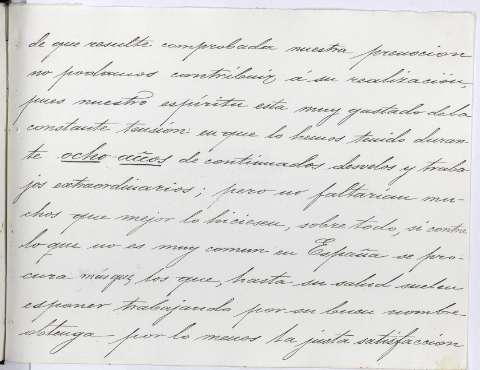 de que resulte comprobada nuestra prevocion
no podamos contribuir á su realización,
pues nuestro espíritu esta muy gastado de la
constante tension en que lo hemos tenido duran-
te ocho años de continuados desvelos y traba
jos extraordinarios; pero no faltarian mu-
chos que mejor lo hiciesen, sobre todo, si contra
lo que no es muy comun en España se pro-
cura más que, los que, hasta su salud suelen
esponer trabajando por su buen nombre
obtenga por lo menos la justa satisfaccion